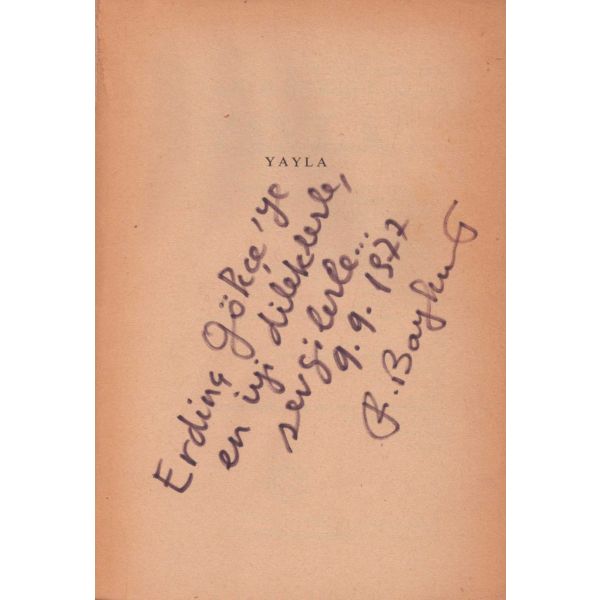 YAYLA
Erdinç Gökçe'ye
en iyi dileklerle,
sevgilerle...
9.9.1977
F. Baykurt